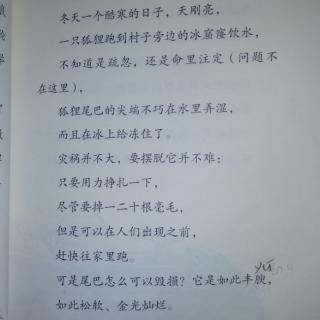 冬天一个酷寒的日子，天刚亮，
一只狐狸跑到村子旁边的冰窟窿饮水，
不知道是疏忽，还是命里注定（问题不
在这里），
狐狸尾巴的尖端不巧在水里弄湿，
而且在冰上给冻住了。
灾祸并不大，要摆脱它并不难：
只要用力挣扎一下，
尽管要掉一二十根毫毛，
但是可以在人们出现之前，
赶快往家里跑。
可是尾巴怎么可以毁损？它是如此丰腴，
如此松软、金光灿烂。